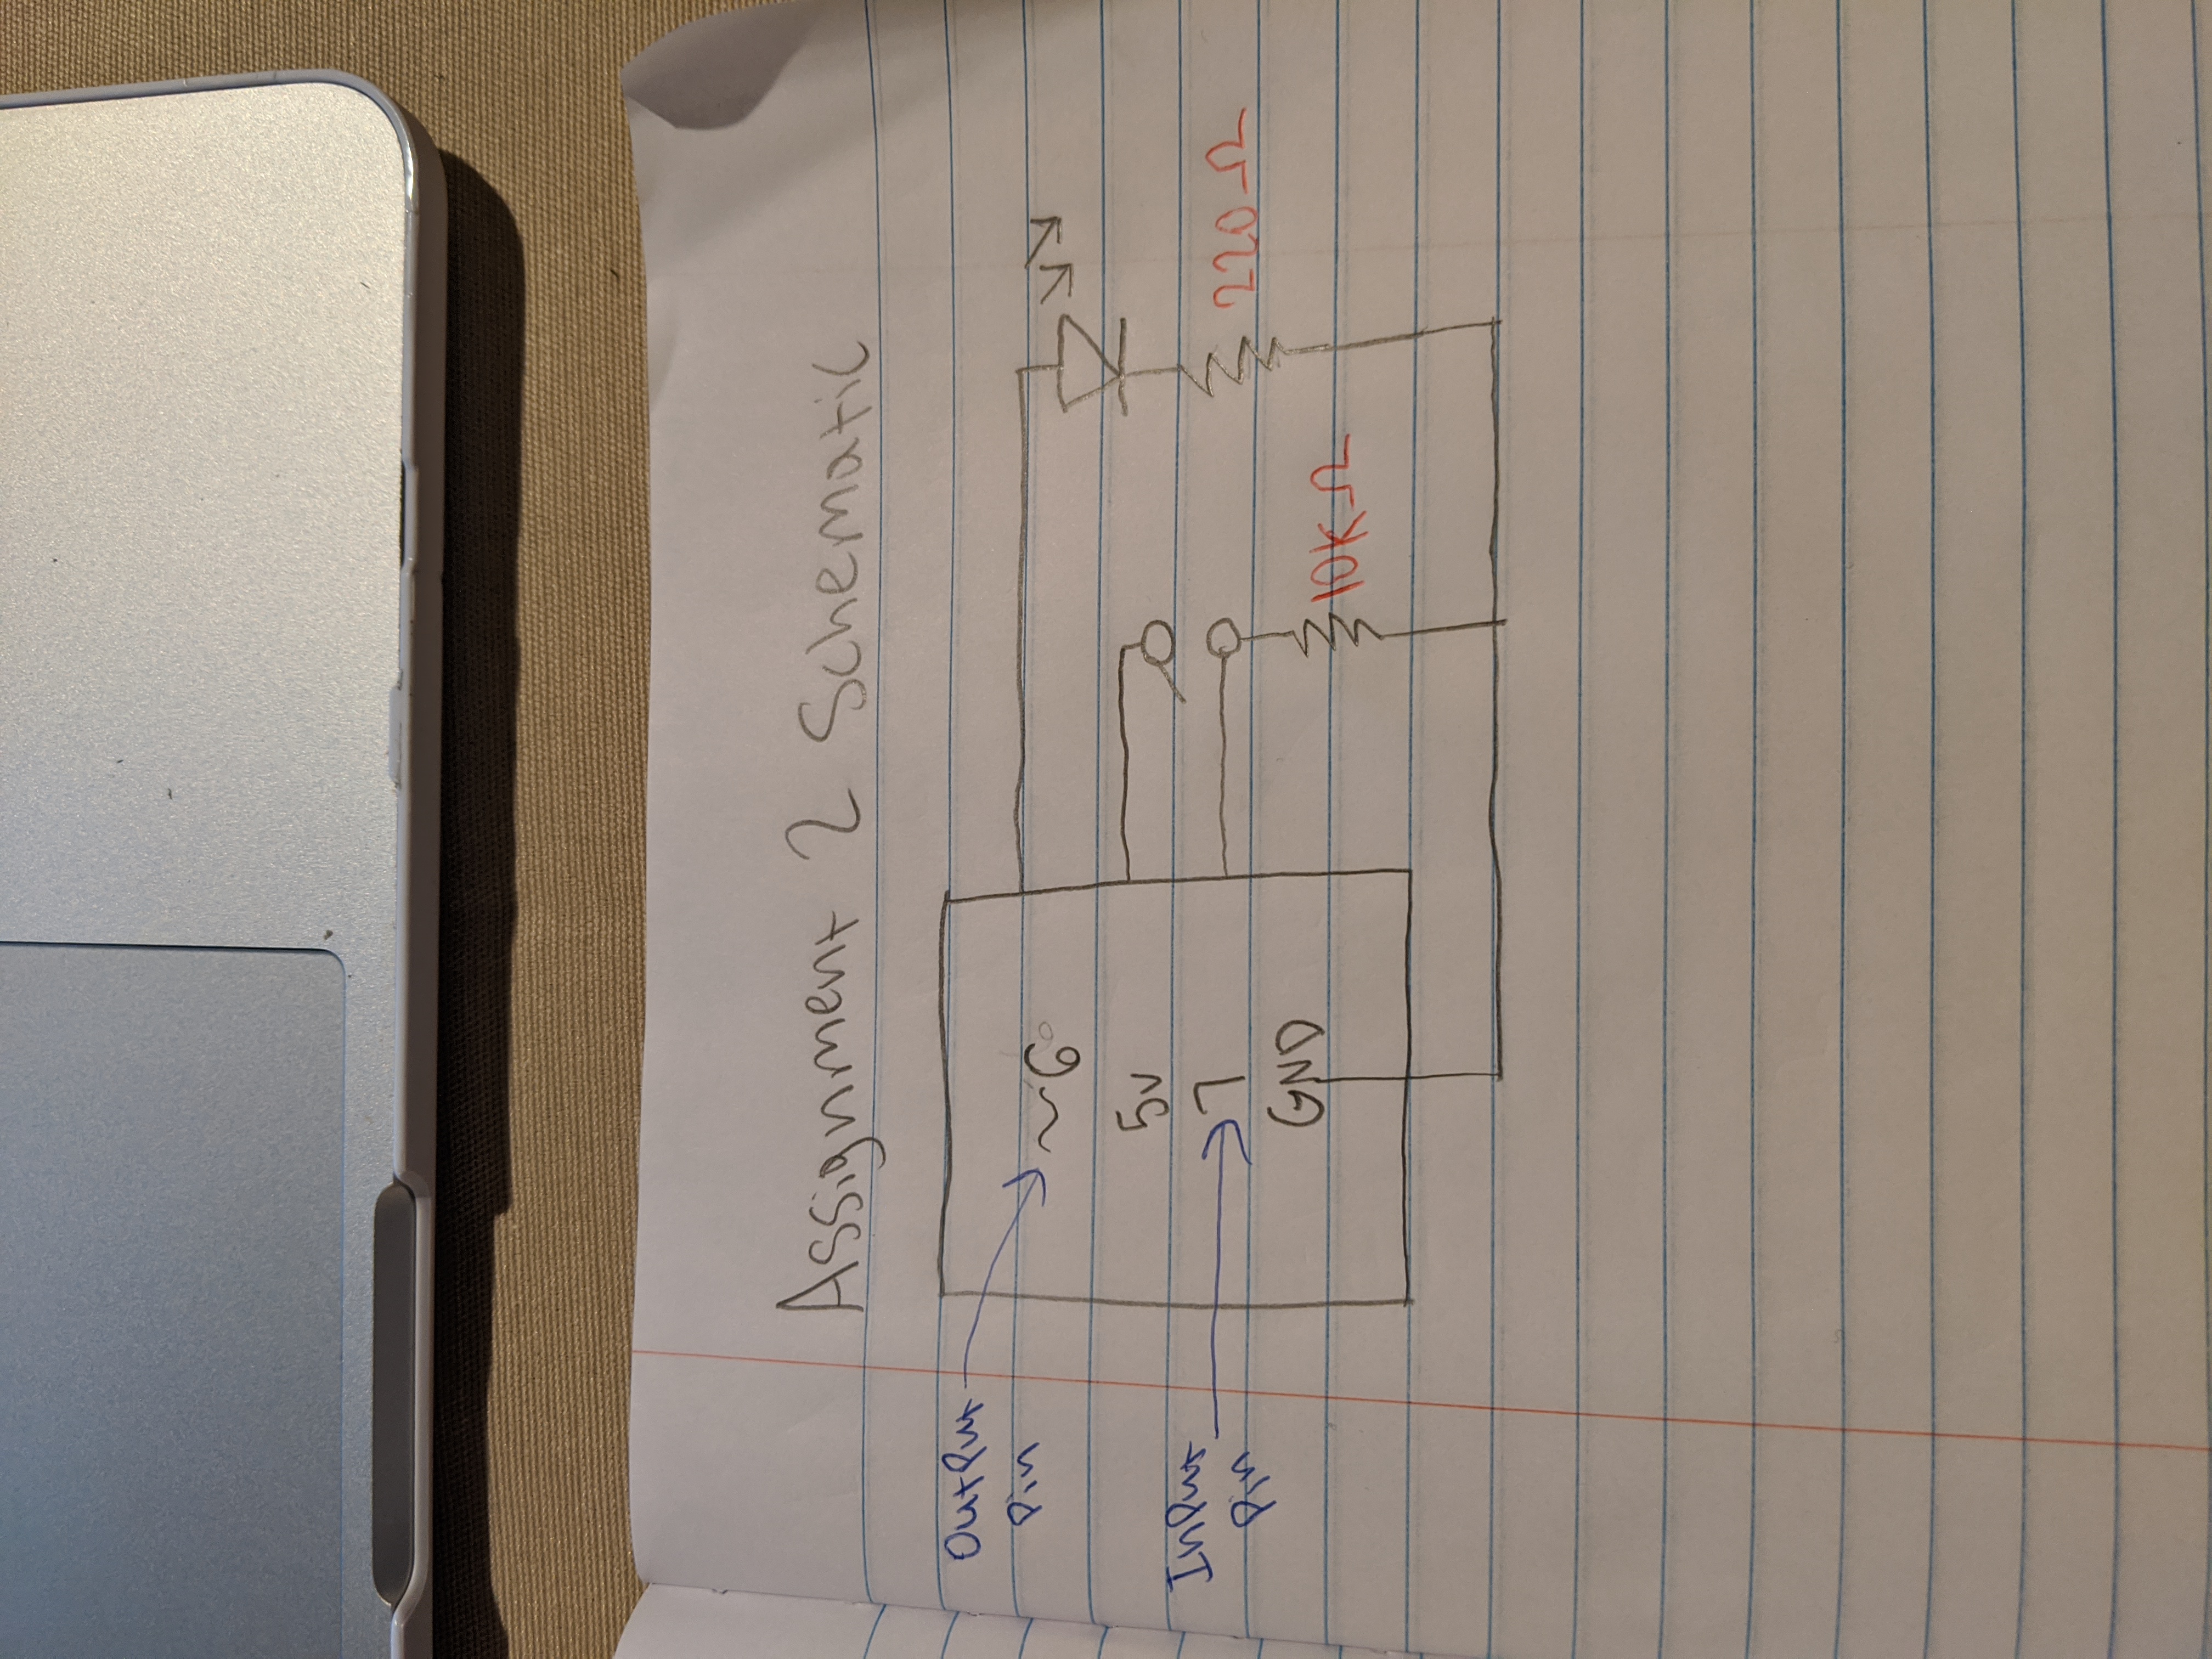 Assignment 2 Schematic
Output
Pin
~6
5v
Input
Pin
7
GND
220Ω
10KΩ